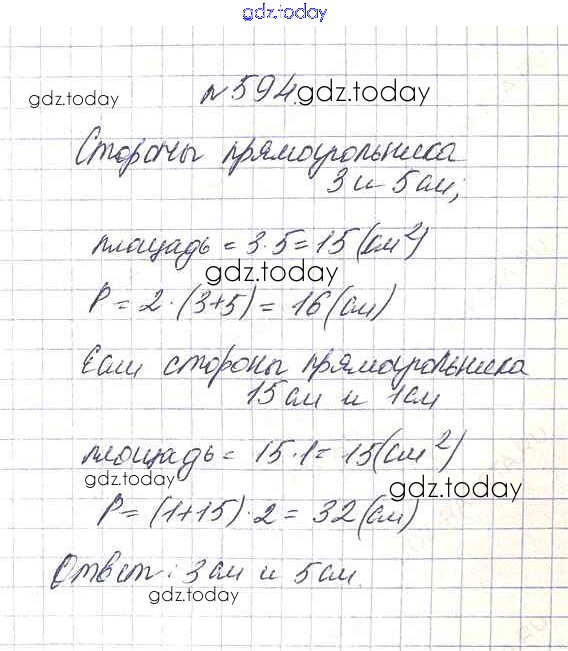 gdz.today
№594 gdz.today
gdz.today
Стороны прямоугольника
3 и 5 см;
площадь = 3·5 = 15 (см²)
gdz.today
P = 2·(3+5) = 16 (см)
Если стороны прямоугольника
15 см и 1 см
площадь = 15·1 = 15 (см²)
gdz.today
gdz.today
P = (1+15)·2 = 32 (см)
Ответ: 3 см и 5 см.
gdz.today